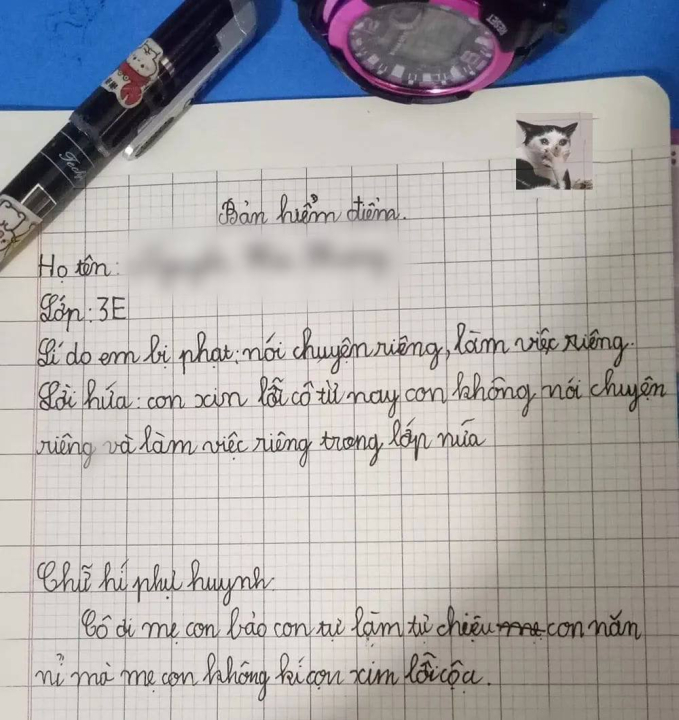 RESET
Bản hiểm điểm.
Họ tên:
Lớp: 3E
Lí do em bị phạt: nói chuyện riêng, làm việc riêng.
Lời hứa: con xin lỗi cô từ nay con không nói chuyện
riêng và làm việc riêng trong lớp nữa
Chữ hí phụ huynh
Cô ơi mẹ con bảo con tự làm tự chiệu me con năn
nỉ mà mẹ con không kí con xin lỗi cộa.